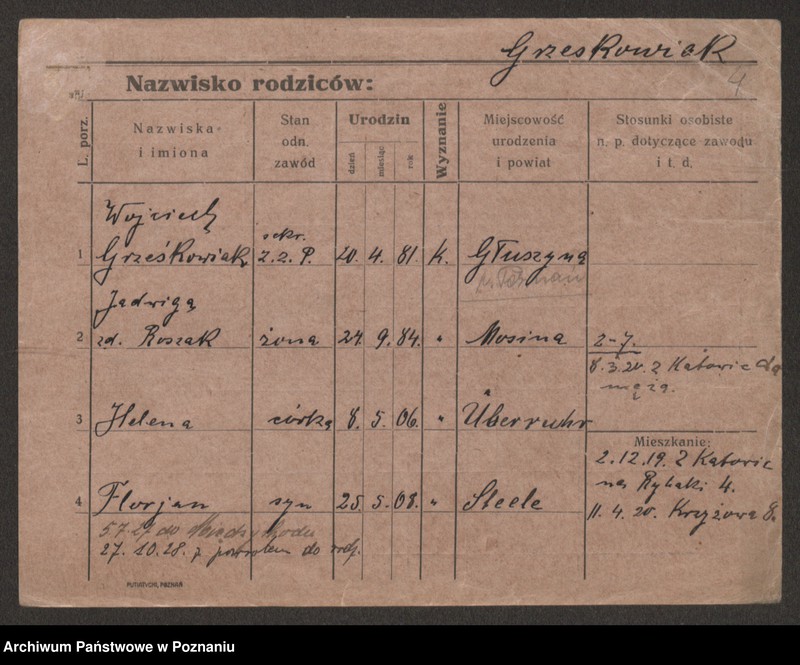 Grześkowiak
4
Nazwisko rodziców:
L. porz.
Nazwiska i imiona
Stan odn. zawód
Urodzin
dzień
miesiąc
rok
Wyznanie
Miejscowość urodzenia i powiat
Stosunki osobiste n. p. dotyczące zawodu i t. d.
Wojciech
sekr.
1 Grześkowiak Z.Z.P. 20. 4. 81. k. Głuszyna
Jadwiga
2 zd. Roszak żona 24. 9. 84. " Mosina 2-7.
8.3.20. z Katowic do
męża.
3 Helena córka 8. 5. 06. " Überruhr
Mieszkanie:
2.12.19. z Katowic
na Rybaki 4.
4 Florjan syn 25. 5. 08. " Steele 11. 4. 20. Krzyżowa 8.
5.7.27 do
27. 10. 28. z powrotem do rodz.
PUTIATYCKI, POZNAŃ
Archiwum Państwowe w Poznaniu